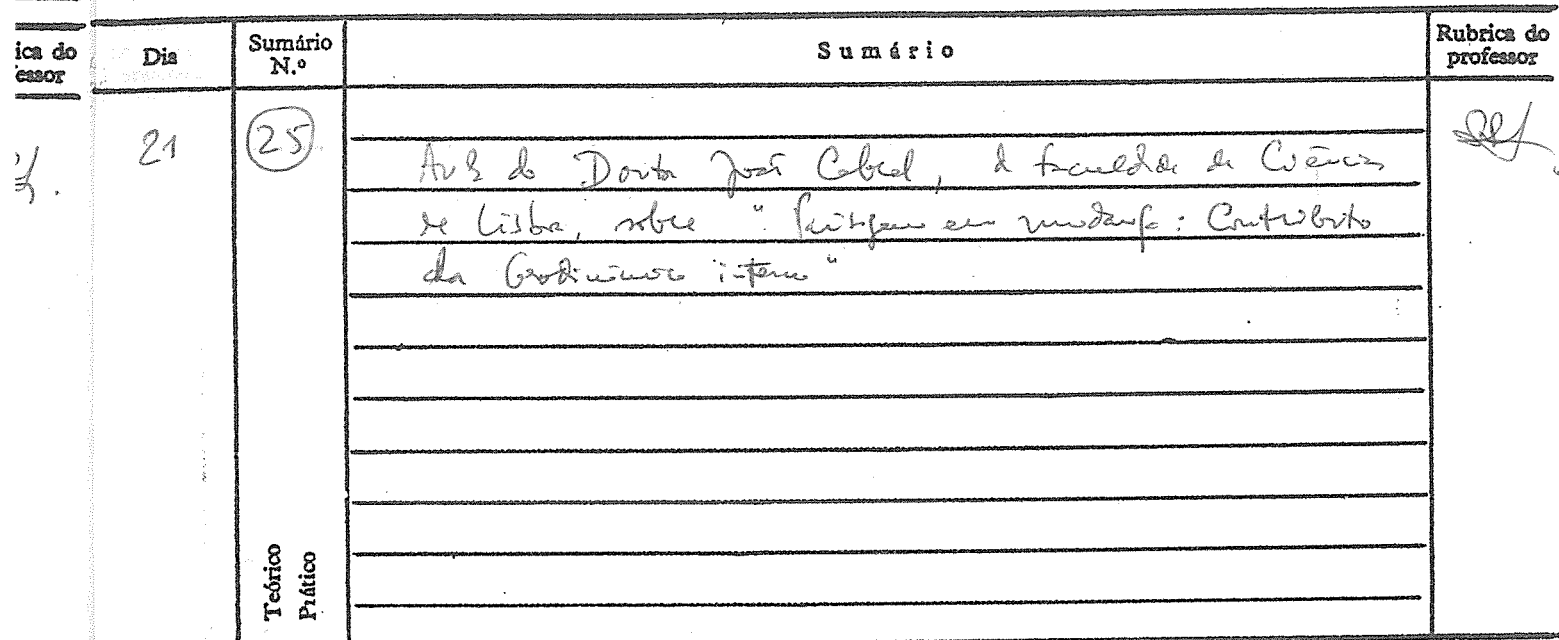 ica do
essor
Dia
Sumário
N.º
Sumário
Rubrica do
professor
21
25
Aula do Doutor João Cabral, da Faculdade de Ciências
de Lisboa, sobre "Paisagem em mudança: Contributo
da Geodinâmica interna"
Teórico
Prático